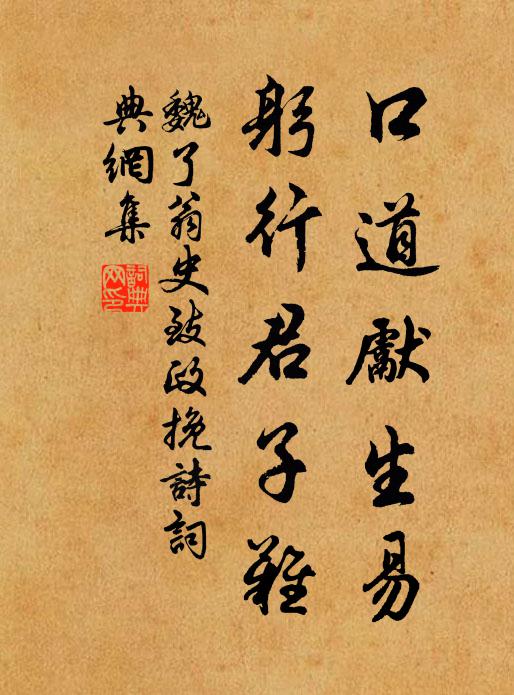 口道獻生易
躬行君子難
魏了翁史致政挽詩詞
典網集
詞典网印